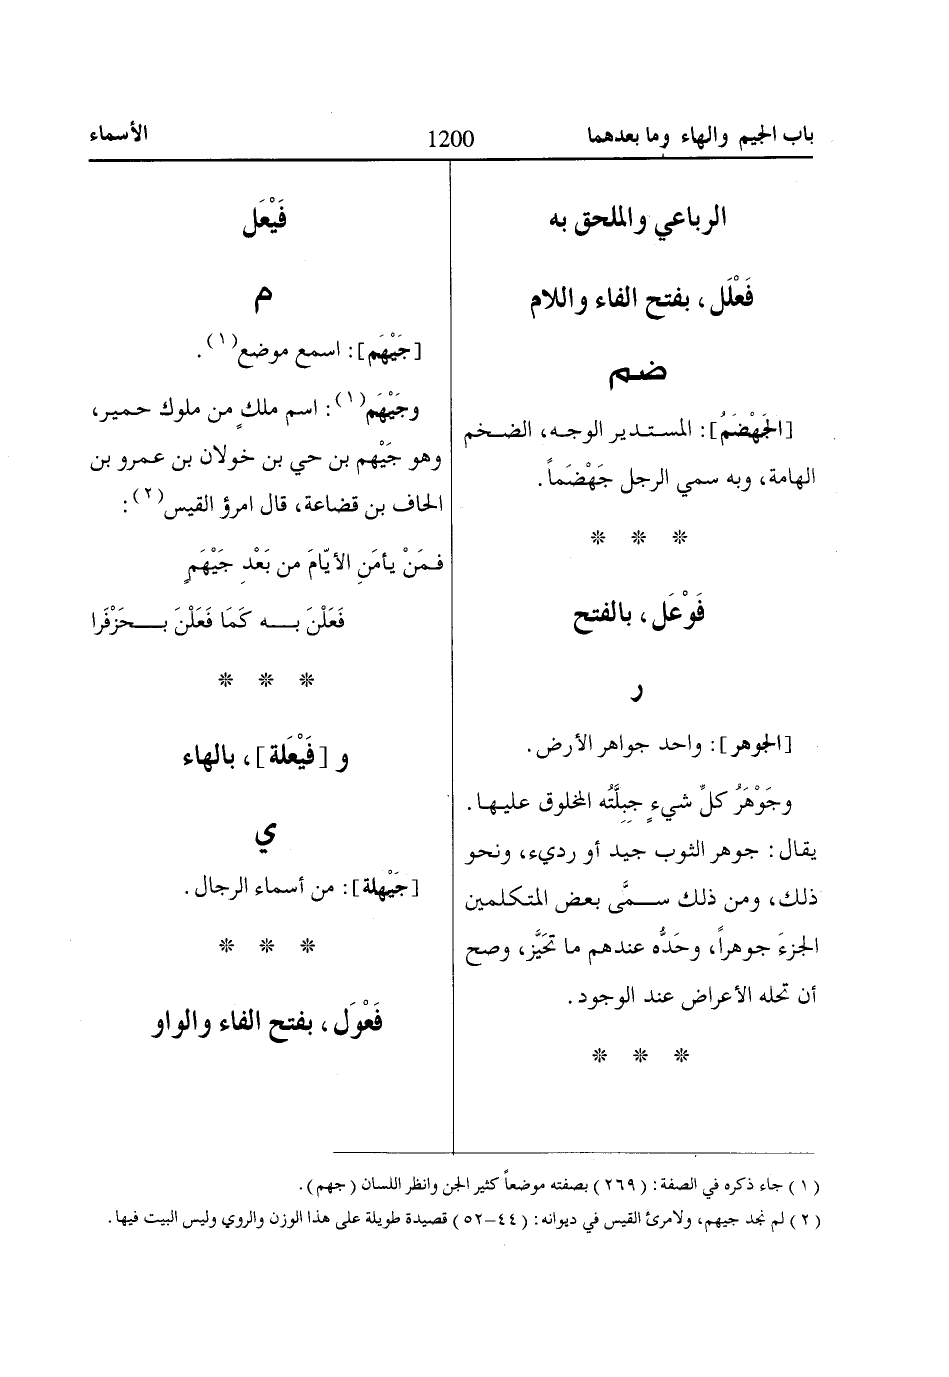 باب الجيم والهاء وما بعدهما
1200
الأسماء
الرباعي والملحق به
فَعْلَل، بفتح الفاء واللام
ضم
[الجَهْضَمُ]: المستدير الوجه، الضخم
الهامة، وبه سمي الرجل جَهْضَماً.
* * *
فَوْعَل، بالفتح
ر
[الجوهر]: واحد جواهر الأرض.
وجَوْهَرُ كلِّ شيءٍ جِبِلَّتُه المخلوق عليها.
يقال: جوهر الثوب جيد أو رديء، ونحو
ذلك، ومن ذلك سمَّى بعض المتكلمين
الجزءَ جوهراً، وحَدُّه عندهم ما تَحَيَّز، وصح
أن تحله الأعراض عند الوجود.
* * *
فَيْعَل
م
[جَيْهَم]: اسمع موضع(١).
وجَيْهَم(١): اسم ملكٍ من ملوك حمير،
وهو جَيْهم بن حي بن خولان بن عمرو بن
الحاف بن قضاعة، قال امرؤ القيس(٢):
فمَنْ يأمَنِ الأيّامَ من بَعْدِ جَيْهَمٍ
فَعَلْنَ بــه كَمَا فَعَلْنَ بــحَزْفَرا
* * *
و [فَيْعَلة]، بالهاء
ي
[جَيْهلة]: من أسماء الرجال.
* * *
فَعْوَل، بفتح الفاء والواو
(١) جاء ذكره في الصفة: (٢٦٩) بصفته موضعاً كثير الجن وانظر اللسان (جهم).
(٢) لم نجد جيهم، ولامرئ القيس في ديوانه: (٤٤-٥٢) قصيدة طويلة على هذا الوزن والروي وليس البيت فيها.